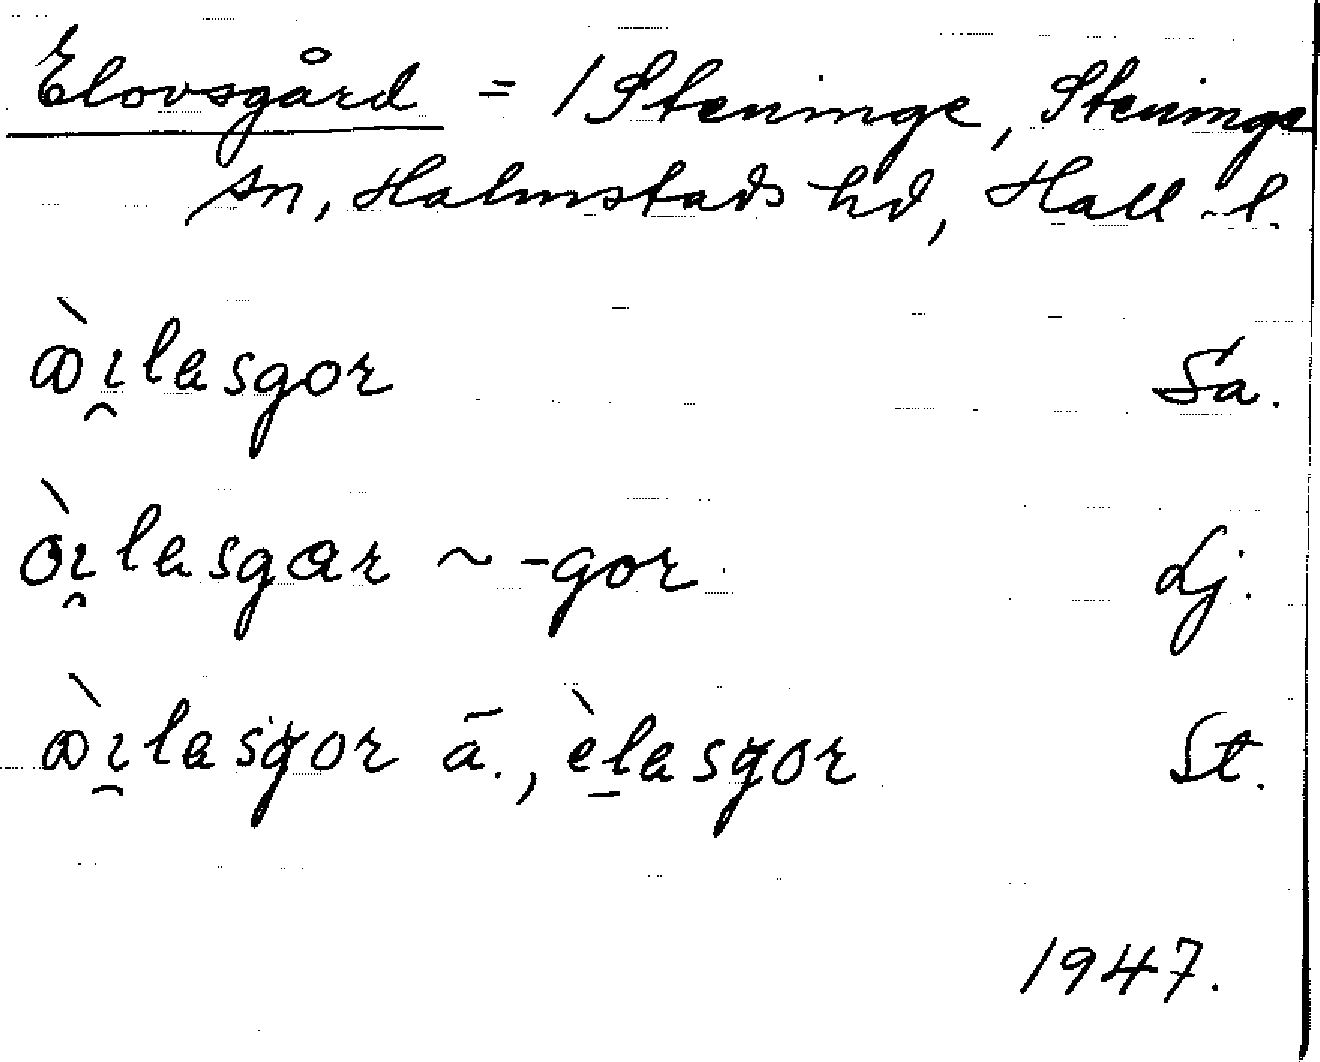 Elovsgård = 1 Steninge, Steninge
sn, Halmstads hd, Hall. l.
ꝏ̀ı̯lasgor Sa.
òı̯lasgar ~ -gor Lj.
ꝏ̀ı̯lasgor ā., èḻasgor St.
1947.